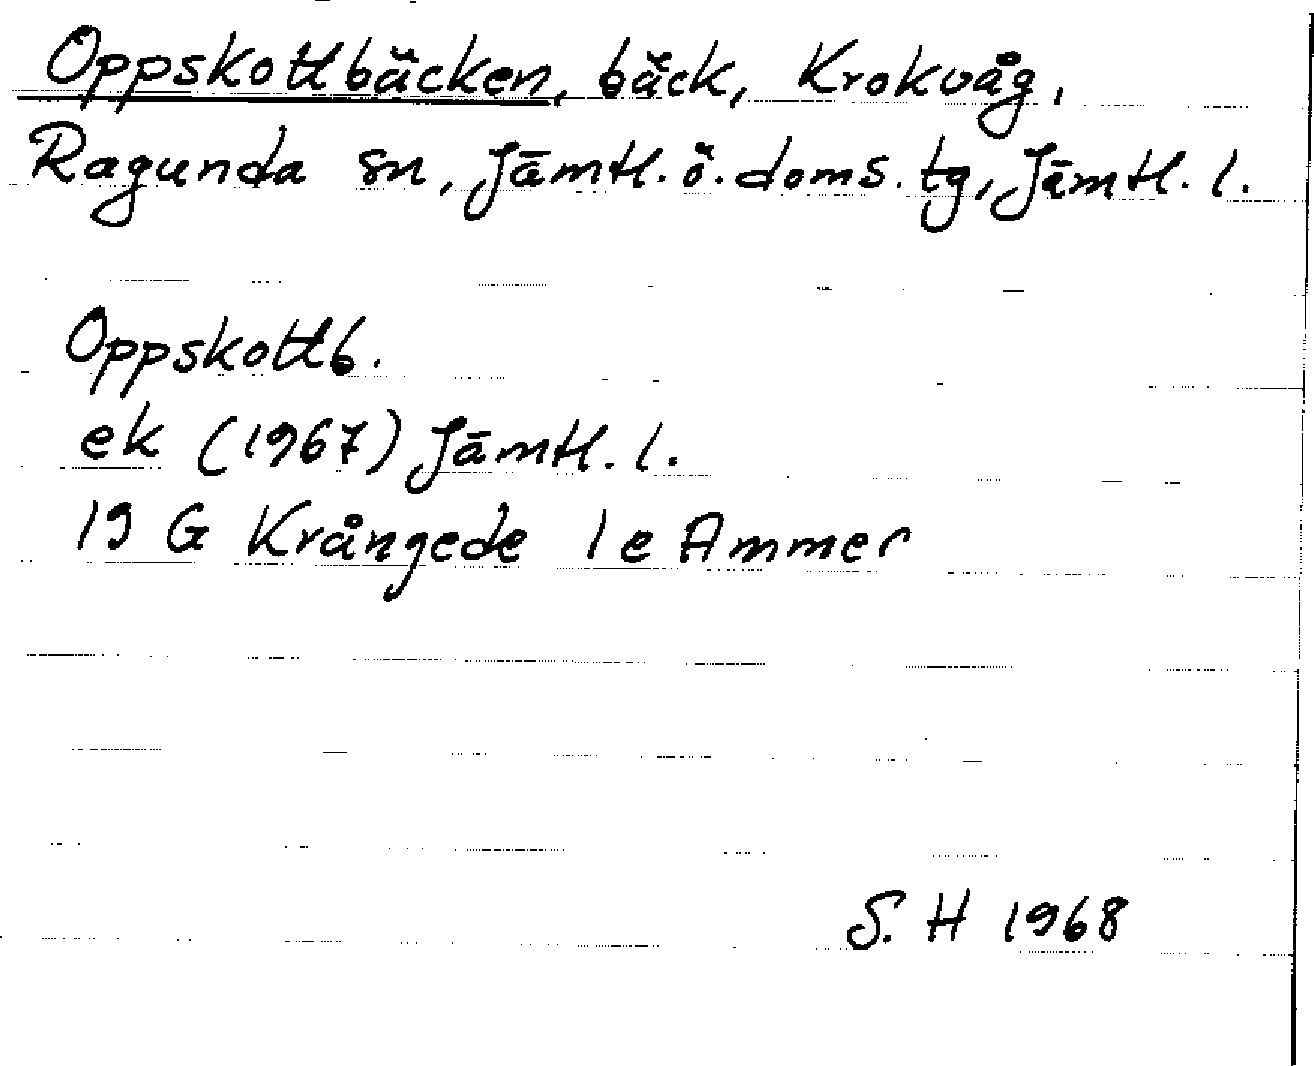 Oppskottbäcken, bäck, Krokvåg,
Ragunda sn, Jämtl. ö. doms. tg, Jämtl. l.
Oppskottb.
ek (1967) Jämtl. l.
19 G Krångede 1 e Ammer
S. H 1968